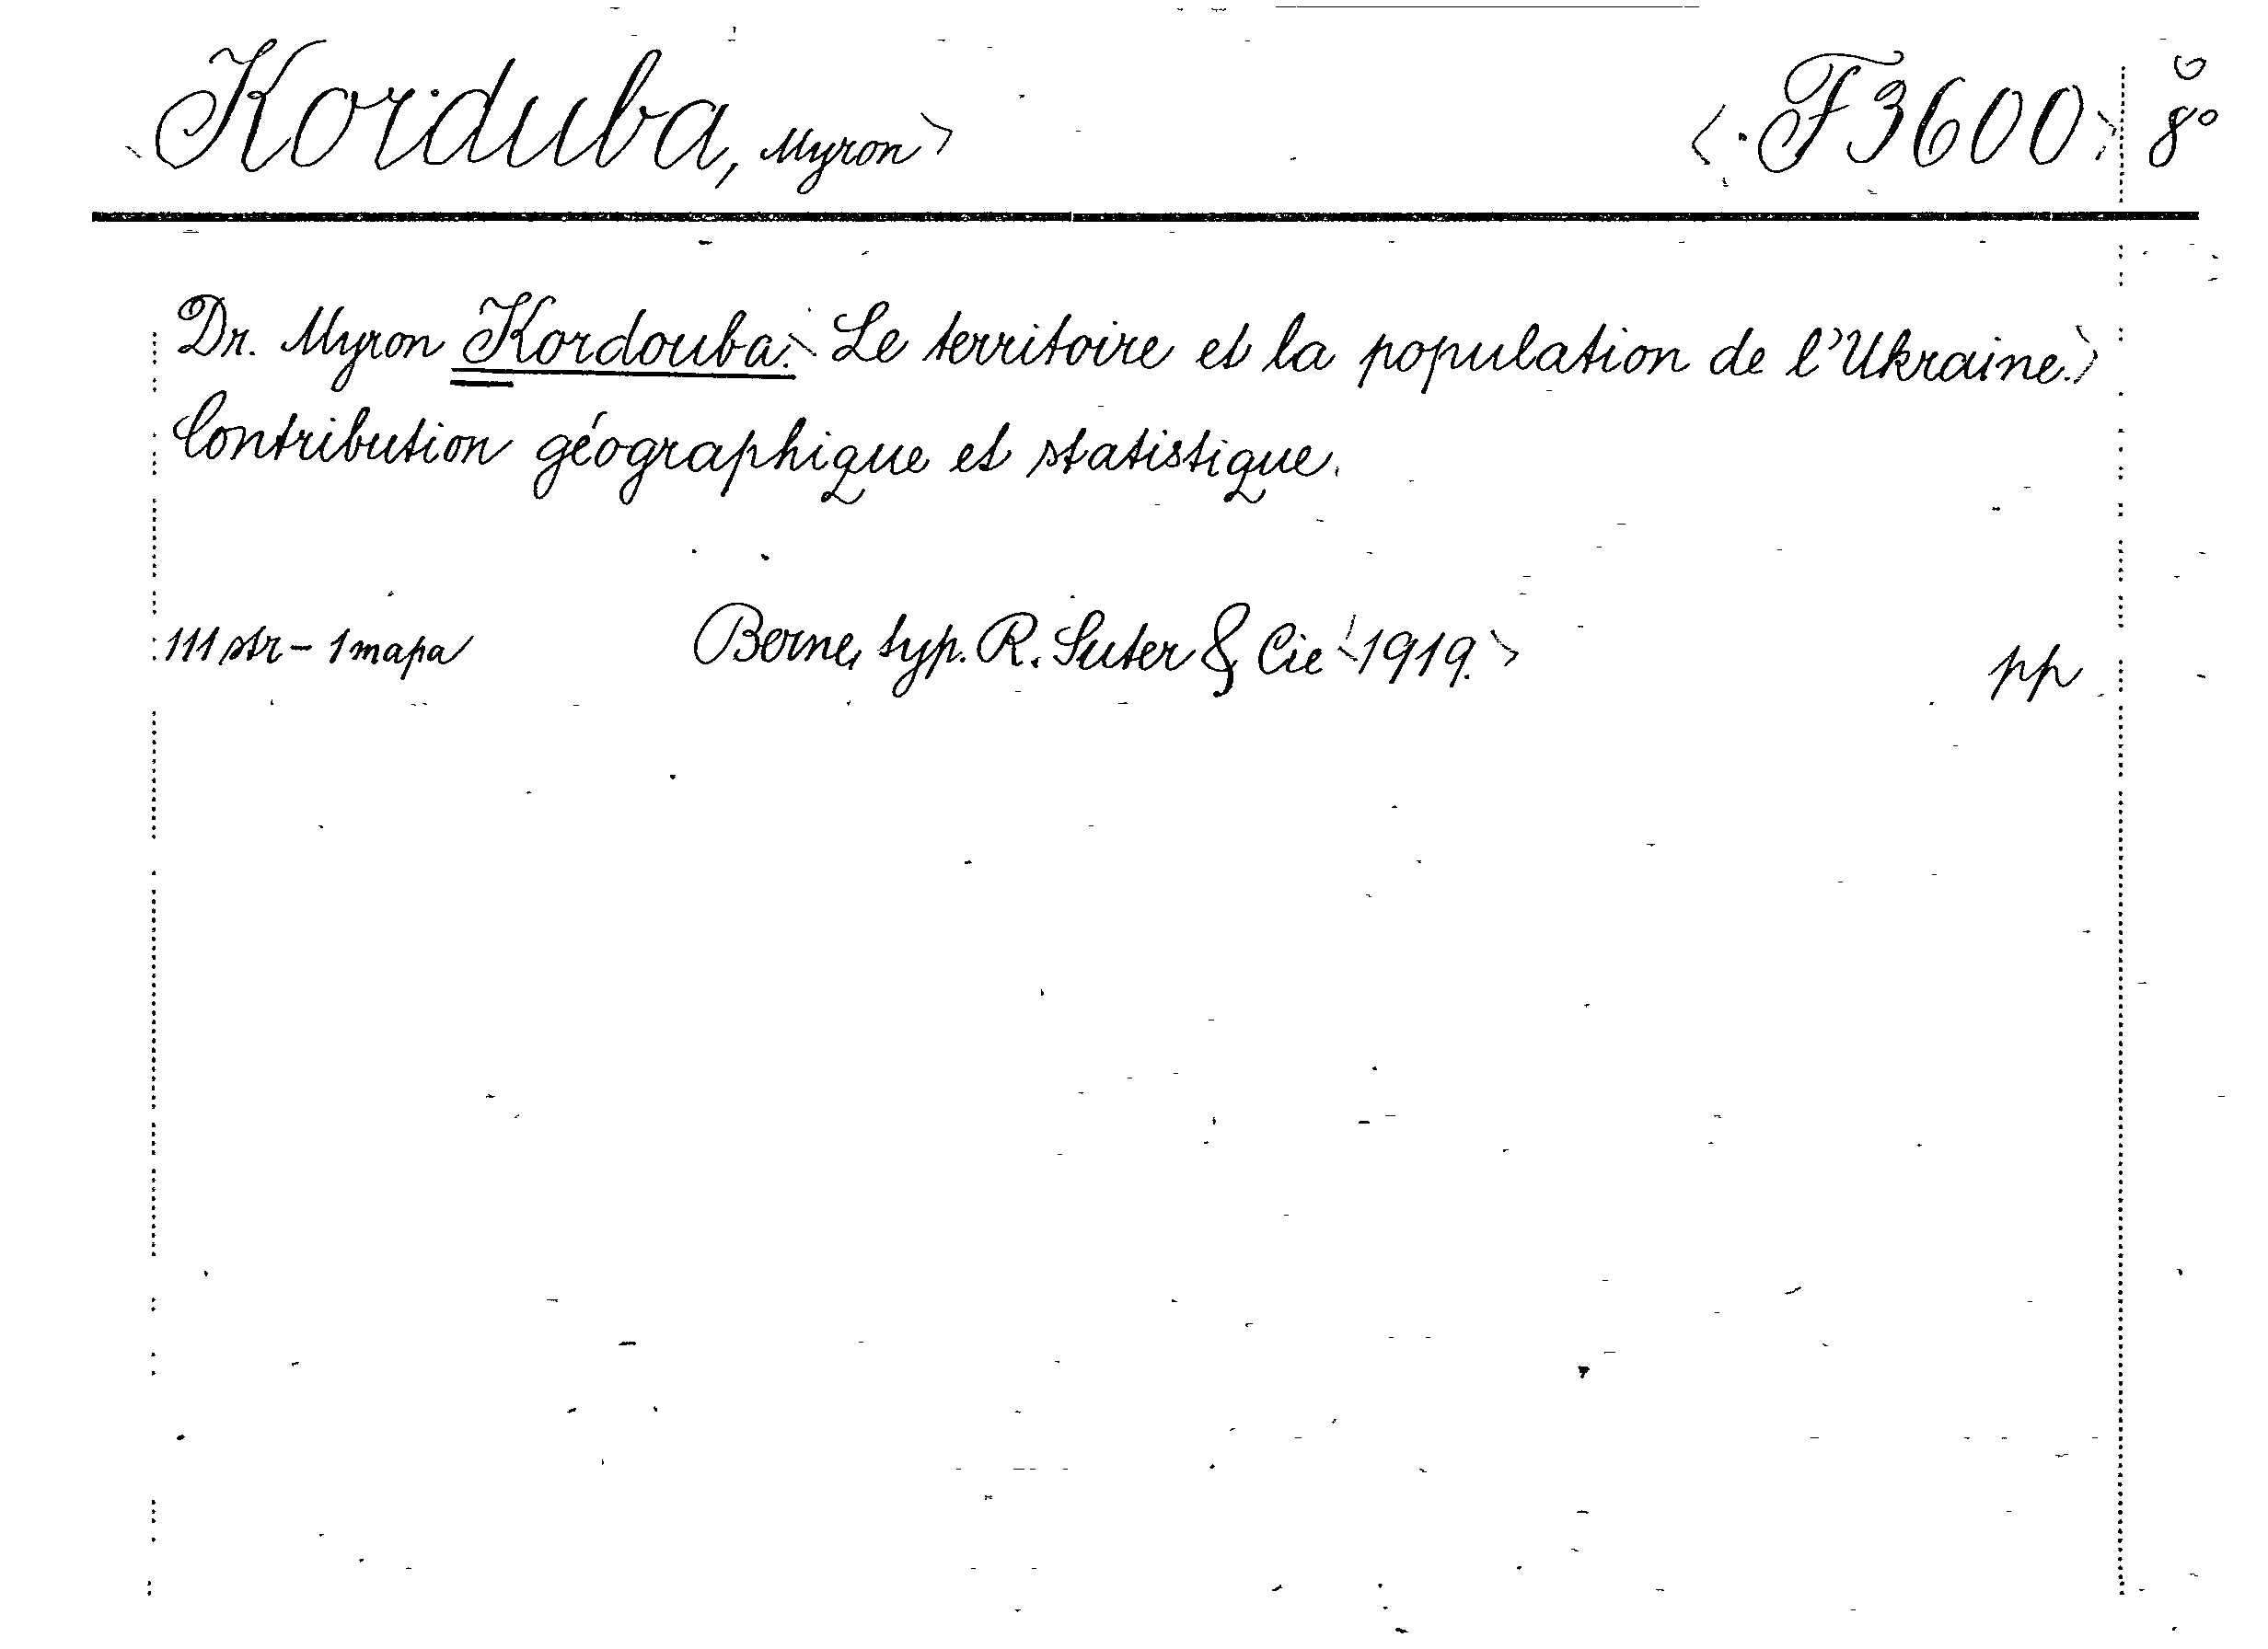 Korduba, Myron F3600 8°
Dr. Myron Kordouba. Le territoire et la population de l'Ukraine.
Contribution géographique et statistique.
111 str - 1 mapa Berne, typ. R. Suter & Cie 1919. pp